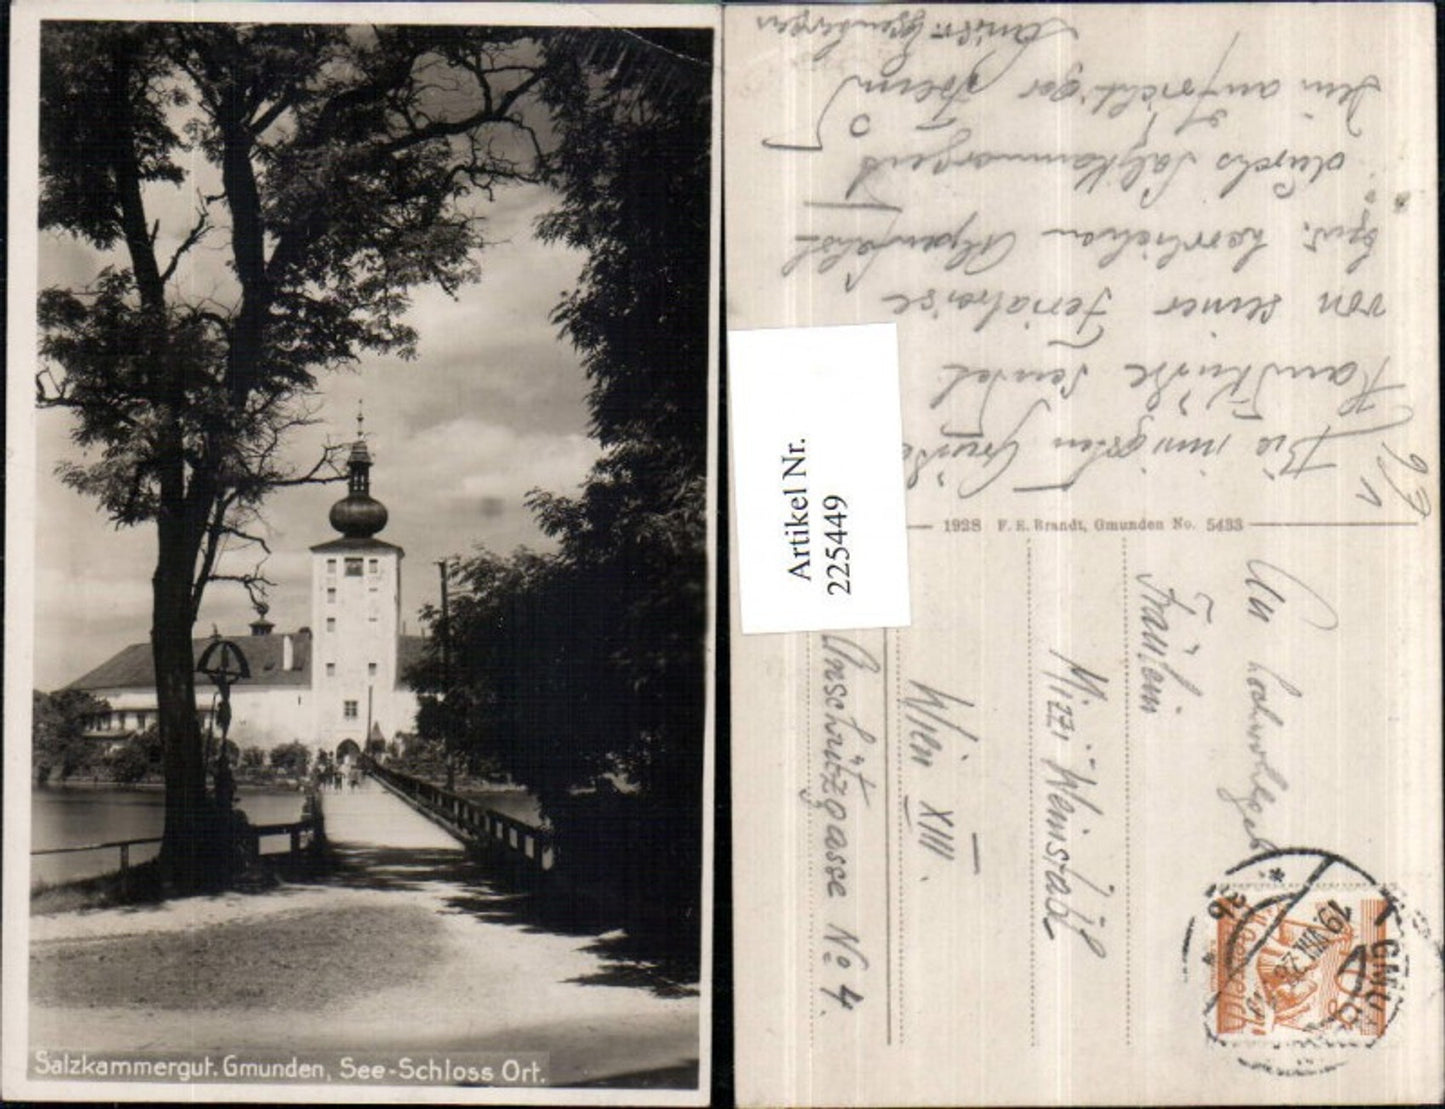 Salzkammergut. Gmunden, See-Schloss Ort.
Artikel Nr.
225449
1928 F. E. Brandt, Gmunden No. 5433
Die innigsten Grüße u.
Handküsse sendet
von seiner Ferialreise
bzw. herrlichen Alpenfahrt
durchs Salzkammergut
Ihr aufrichtiger
An
Hochwohlgeb.
Fräulein
Mizzi Weinstabl
Wien XIII.
Anschützgasse No 4.
GMUNDEN
19.VIII.28